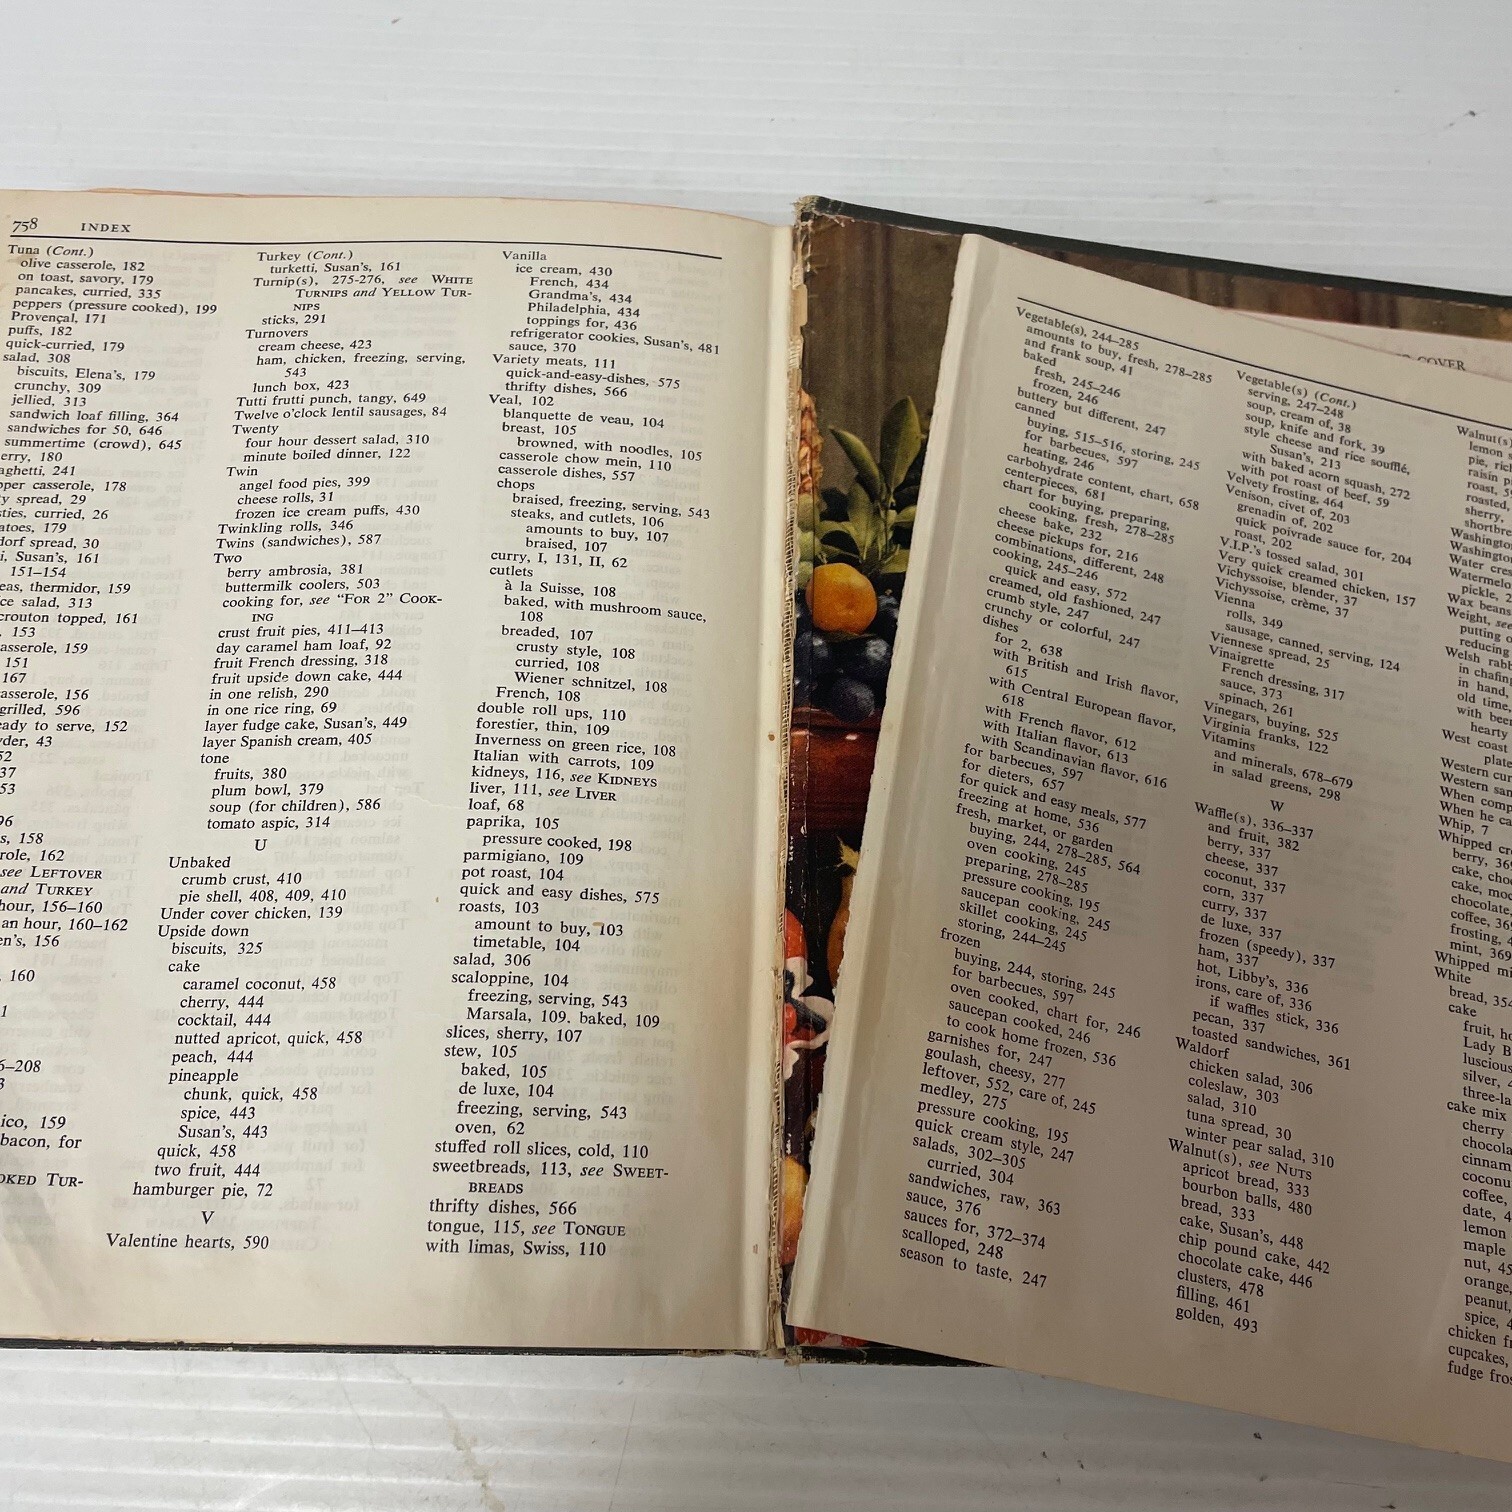 758 INDEX
Tuna (Cont.)
olive casserole, 182
on toast, savory, 179
pancakes, curried, 335
peppers (pressure cooked), 199
Provençal, 171
puffs, 182
quick-curried, 179
salad, 308
biscuits, Elena's, 179
crunchy, 309
jellied, 313
sandwich loaf filling, 364
sandwiches for 50, 646
summertime (crowd), 645
erry, 180
aghetti, 241
pper casserole, 178
y spread, 29
sties, curried, 26
atoes, 179
dorf spread, 30
i, Susan's, 161
151–154
eas, thermidor, 159
ce salad, 313
crouton topped, 161
, 153
asserole, 159
151
167
asserole, 156
grilled, 596
eady to serve, 152
der, 43
52
37
53
96
s, 158
role, 162
see LEFTOVER
and TURKEY
hour, 156–160
an hour, 160–162
en's, 156
, 160
1
6–208
3
ico, 159
bacon, for
OKED TUR-
Turkey (Cont.)
turketti, Susan's, 161
Turnip(s), 275-276, see WHITE
TURNIPS and YELLOW TUR-
NIPS
sticks, 291
Turnovers
cream cheese, 423
ham, chicken, freezing, serving,
543
lunch box, 423
Tutti frutti punch, tangy, 649
Twelve o'clock lentil sausages, 84
Twenty
four hour dessert salad, 310
minute boiled dinner, 122
Twin
angel food pies, 399
cheese rolls, 31
frozen ice cream puffs, 430
Twinkling rolls, 346
Twins (sandwiches), 587
Two
berry ambrosia, 381
buttermilk coolers, 503
cooking for, see "FOR 2" COOK-
ING
crust fruit pies, 411–413
day caramel ham loaf, 92
fruit French dressing, 318
fruit upside down cake, 444
in one relish, 290
in one rice ring, 69
layer fudge cake, Susan's, 449
layer Spanish cream, 405
tone
fruits, 380
plum bowl, 379
soup (for children), 586
tomato aspic, 314
U
Unbaked
crumb crust, 410
pie shell, 408, 409, 410
Under cover chicken, 139
Upside down
biscuits, 325
cake
caramel coconut, 458
cherry, 444
cocktail, 444
nutted apricot, quick, 458
peach, 444
pineapple
chunk, quick, 458
spice, 443
Susan's, 443
quick, 458
two fruit, 444
hamburger pie, 72
V
Valentine hearts, 590
Vanilla
ice cream, 430
French, 434
Grandma's, 434
Philadelphia, 434
toppings for, 436
refrigerator cookies, Susan's, 481
sauce, 370
Variety meats, 111
quick-and-easy-dishes, 575
thrifty dishes, 566
Veal, 102
blanquette de veau, 104
breast, 105
browned, with noodles, 105
casserole chow mein, 110
casserole dishes, 557
chops
braised, freezing, serving, 543
steaks, and cutlets, 106
amounts to buy, 107
braised, 107
curry, I, 131, II, 62
cutlets
à la Suisse, 108
baked, with mushroom sauce,
108
breaded, 107
crusty style, 108
curried, 108
Wiener schnitzel, 108
French, 108
double roll ups, 110
forestier, thin, 109
Inverness on green rice, 108
Italian with carrots, 109
kidneys, 116, see KIDNEYS
liver, 111, see LIVER
loaf, 68
paprika, 105
pressure cooked, 198
parmigiano, 109
pot roast, 104
quick and easy dishes, 575
roasts, 103
amount to buy, 103
timetable, 104
salad, 306
scaloppine, 104
freezing, serving, 543
Marsala, 109. baked, 109
slices, sherry, 107
stew, 105
baked, 105
de luxe, 104
freezing, serving, 543
oven, 62
stuffed roll slices, cold, 110
sweetbreads, 113, see SWEET-
BREADS
thrifty dishes, 566
tongue, 115, see TONGUE
with limas, Swiss, 110
COVER
Vegetable(s), 244–285
amounts to buy, fresh, 278–285
and frank soup, 41
baked
fresh, 245–246
frozen, 246
buttery but different, 247
canned
buying, 515–516, storing, 245
for barbecues, 597
heating, 246
carbohydrate content, chart, 658
centerpieces, 681
chart for buying, preparing,
cooking, fresh, 278–285
cheese bake, 232
cheese pickups for, 216
combinations, different, 248
cooking, 245–246
quick and easy, 572
creamed, old fashioned, 247
crumb style, 247
crunchy or colorful, 247
dishes
for 2, 638
with British and Irish flavor,
615
with Central European flavor,
618
with French flavor, 612
with Italian flavor, 613
with Scandinavian flavor, 616
for barbecues, 597
for dieters, 657
for quick and easy meals, 577
freezing at home, 536
fresh, market, or garden
buying, 244, 278–285, 564
oven cooking, 245
preparing, 278–285
pressure cooking, 195
saucepan cooking, 245
skillet cooking, 245
storing, 244–245
frozen
buying, 244, storing, 245
for barbecues, 597
oven cooked, chart for, 246
saucepan cooked, 246
to cook home frozen, 536
garnishes for, 247
goulash, cheesy, 277
leftover, 552, care of, 245
medley, 275
pressure cooking, 195
quick cream style, 247
salads, 302–305
curried, 304
sandwiches, raw, 363
sauce, 376
sauces for, 372–374
scalloped, 248
season to taste, 247
Vegetable(s) (Cont.)
serving, 247–248
soup, cream of, 38
soup, knife and fork, 39
style cheese and rice soufflé,
Susan's, 213
with baked acorn squash, 272
with pot roast of beef, 59
Velvety frosting, 464
Venison, civet of, 203
grenadin of, 202
quick poivrade sauce for, 204
roast, 202
V.I.P.'s tossed salad, 301
Very quick creamed chicken, 157
Vichyssoise, blender, 37
Vichyssoise, crème, 37
Vienna
rolls, 349
sausage, canned, serving, 124
Viennese spread, 25
Vinaigrette
French dressing, 317
sauce, 373
spinach, 261
Vinegars, buying, 525
Virginia franks, 122
Vitamins
and minerals, 678–679
in salad greens, 298
W
Waffle(s), 336–337
and fruit, 382
berry, 337
cheese, 337
coconut, 337
corn, 337
curry, 337
de luxe, 337
frozen (speedy), 337
ham, 337
hot, Libby's, 336
irons, care of, 336
if waffles stick, 336
pecan, 337
toasted sandwiches, 361
Waldorf
chicken salad, 306
coleslaw, 303
salad, 310
tuna spread, 30
winter pear salad, 310
Walnut(s), see NUTS
apricot bread, 333
bourbon balls, 480
bread, 333
cake, Susan's, 448
chip pound cake, 442
chocolate cake, 446
clusters, 478
filling, 461
golden, 493
Walnut(s)
lemon s
pie, rich
raisin p
roast, 5
roasted,
sherry,
shortbre
Washington
Washington
Water cres
Watermelo
pickle, 2
Wax beans
Weight, see
putting o
reducing
Welsh rab
in chafing
in hand,
old time,
with beer
hearty
West coast
plate
Western cur
Western san
When comp
When he ca
Whip, 7
Whipped cre
berry, 369
cake, choc
cake, moc
chocolate,
coffee, 369
frosting, 4
mint, 369
Whipped mi
White
bread, 354
cake
fruit, ho
Lady B
luscious
silver, 4
three-la
cake mix
cherry
chocola
cinnam
coconu
coffee,
date, 4
lemon
maple
nut, 45
orange,
peanut,
spice, 4
chicken fr
cupcakes,
fudge fros